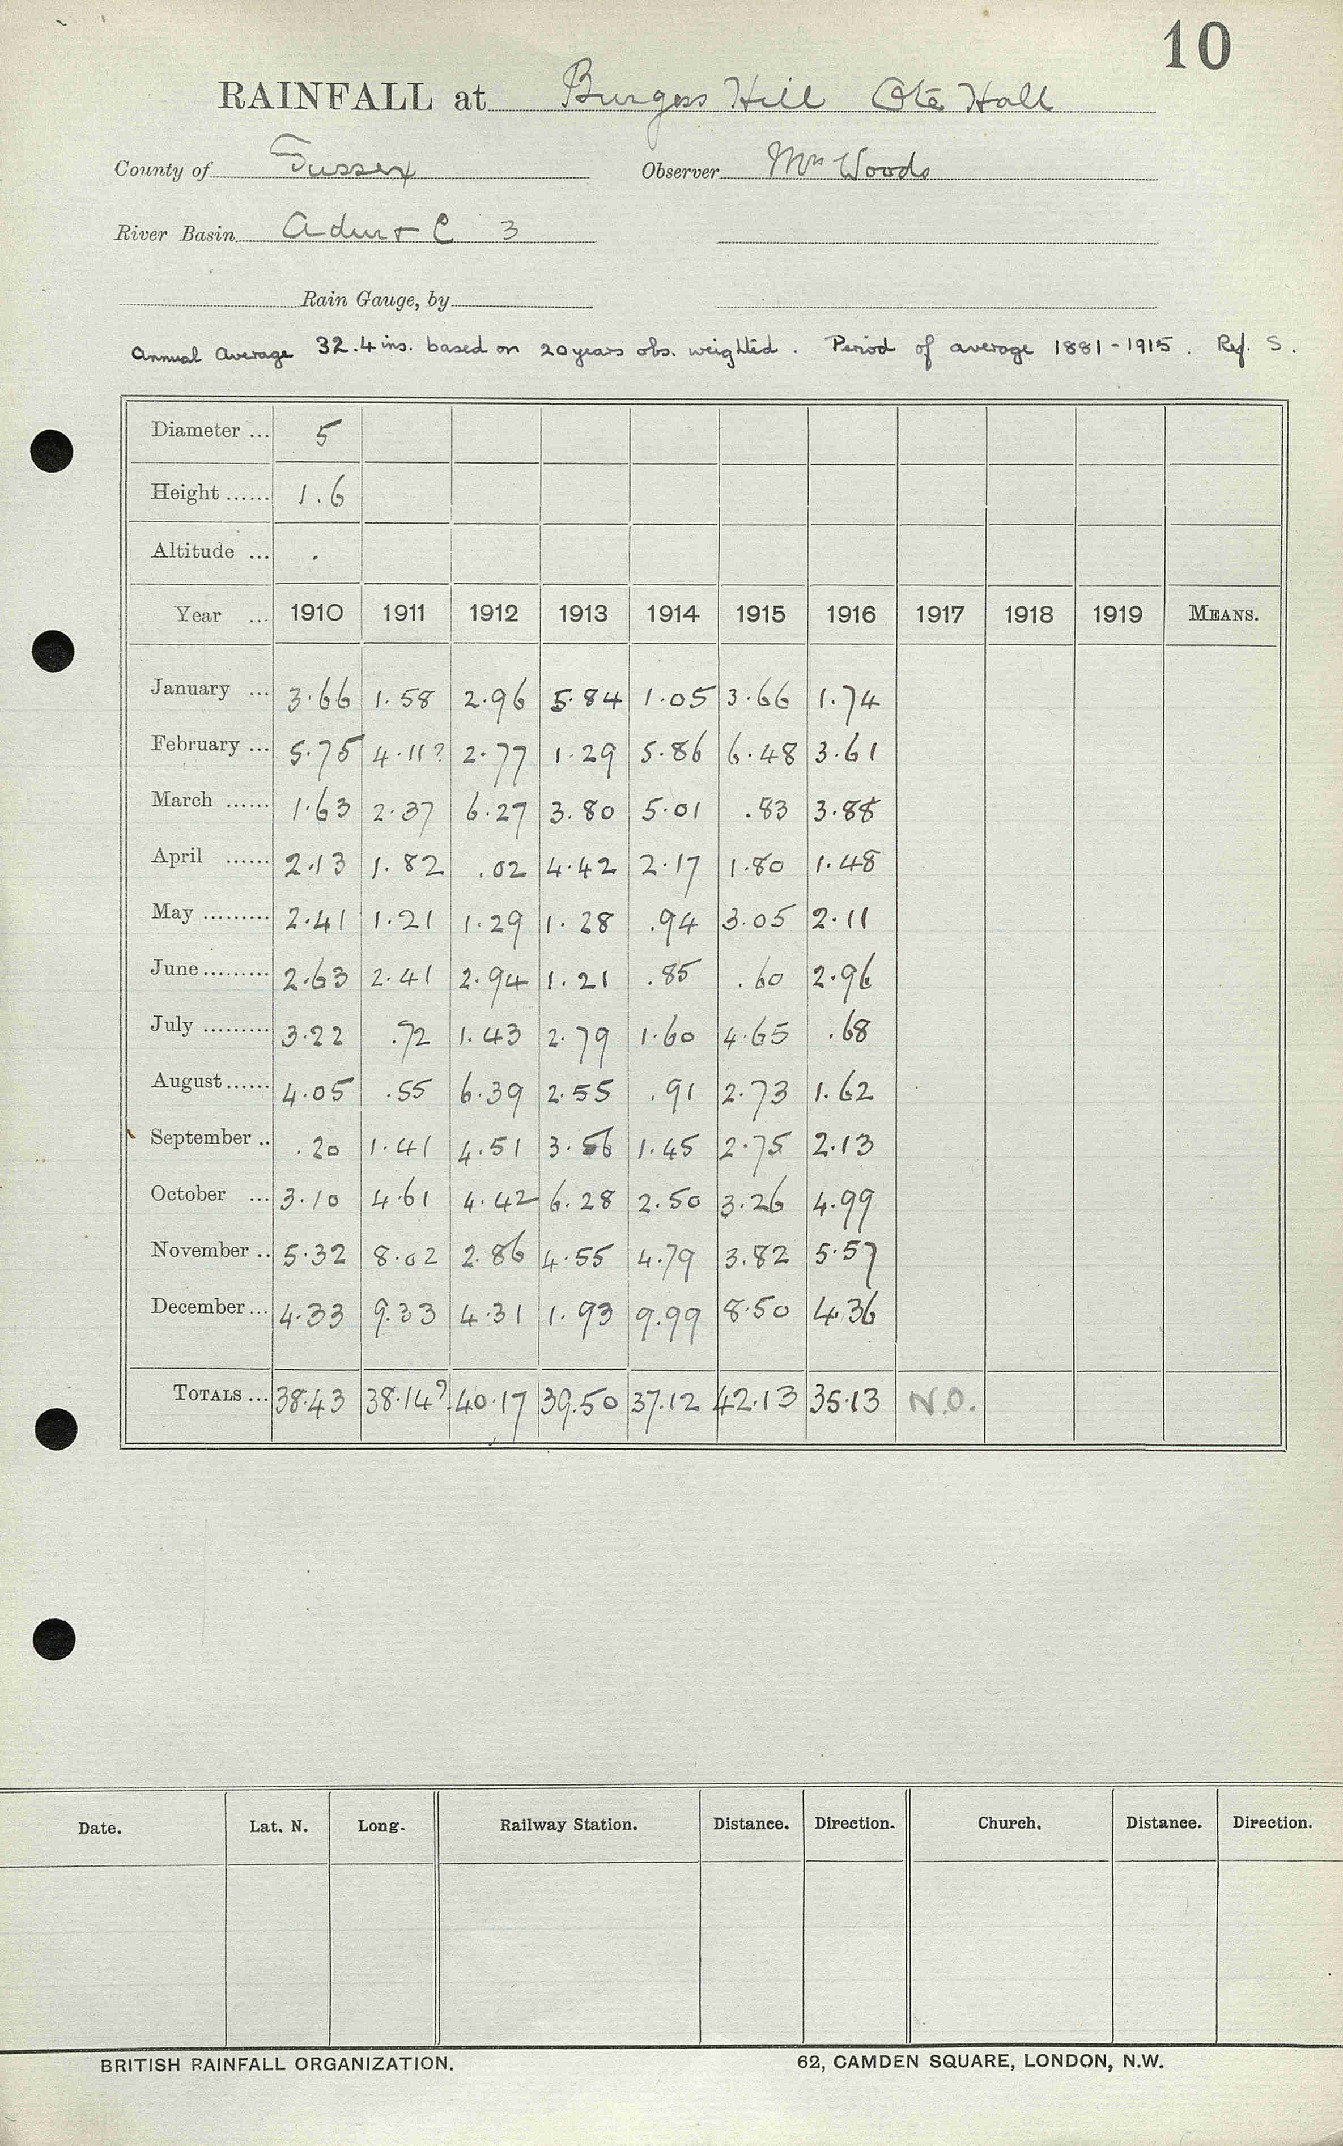 10
RAINFALL at Burgess Hill Ote Hall
County of Sussex Observer Mrs Woods
River Basin Adur & C 3
Rain Gauge, by
Annual Average 32.4 ins. based on 20 years obs. weighted. Period of average 1881-1915. Ref. S.
Diameter ... 5
Height ...... 1.6
Altitude ... .
Year ... 1910 1911 1912 1913 1914 1915 1916 1917 1918 1919 MEANS.
January ... 3.66 1.58 2.96 5.84 1.05 3.66 1.74
February ... 5.75 4.11? 2.77 1.29 5.86 6.48 3.61
March ...... 1.63 2.37 6.27 3.80 5.01 .83 3.88
April ...... 2.13 1.82 .02 4.42 2.17 1.80 1.48
May ......... 2.41 1.21 1.29 1.28 .94 3.05 2.11
June ......... 2.63 2.41 2.94 1.21 .85 .60 2.96
July ......... 3.22 .72 1.43 2.79 1.60 4.65 .68
August ...... 4.05 .55 6.39 2.55 .91 2.73 1.62
September .. .20 1.41 4.51 3.56 1.45 2.75 2.13
October ... 3.10 4.61 4.42 6.28 2.50 3.26 4.99
November .. 5.32 8.02 2.86 4.55 4.79 3.82 5.57
December ... 4.33 9.33 4.31 1.93 9.99 8.50 4.36
TOTALS ... 38.43 38.14? 40.17 39.50 37.12 42.13 35.13 N.O.
Date. Lat. N. Long. Railway Station. Distance. Direction. Church. Distance. Direction.
BRITISH RAINFALL ORGANIZATION. 62, CAMDEN SQUARE, LONDON, N.W.